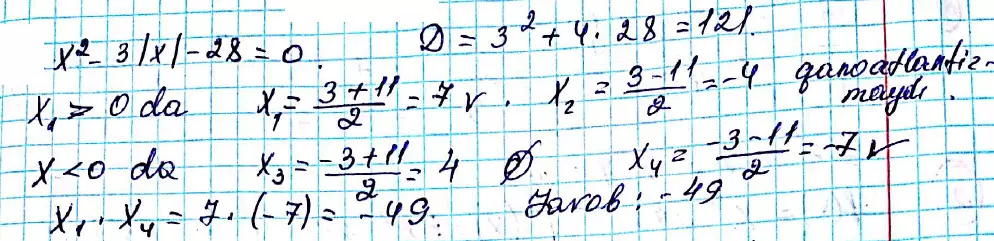 x² - 3|x| - 28 = 0. D = 3² + 4 · 28 = 121.
x₁ ⩾ 0 da x₁ = (3 + 11)/2 = 7 v. x₂ = (3 - 11)/2 = -4 qanoatlantir-
maydi.
x < 0 da x₃ = (-3 + 11)/2 = 4 Ø. x₄ = (-3 - 11)/2 = -7 v
x₁ · x₄ = 7 · (-7) = -49. Javob: -49